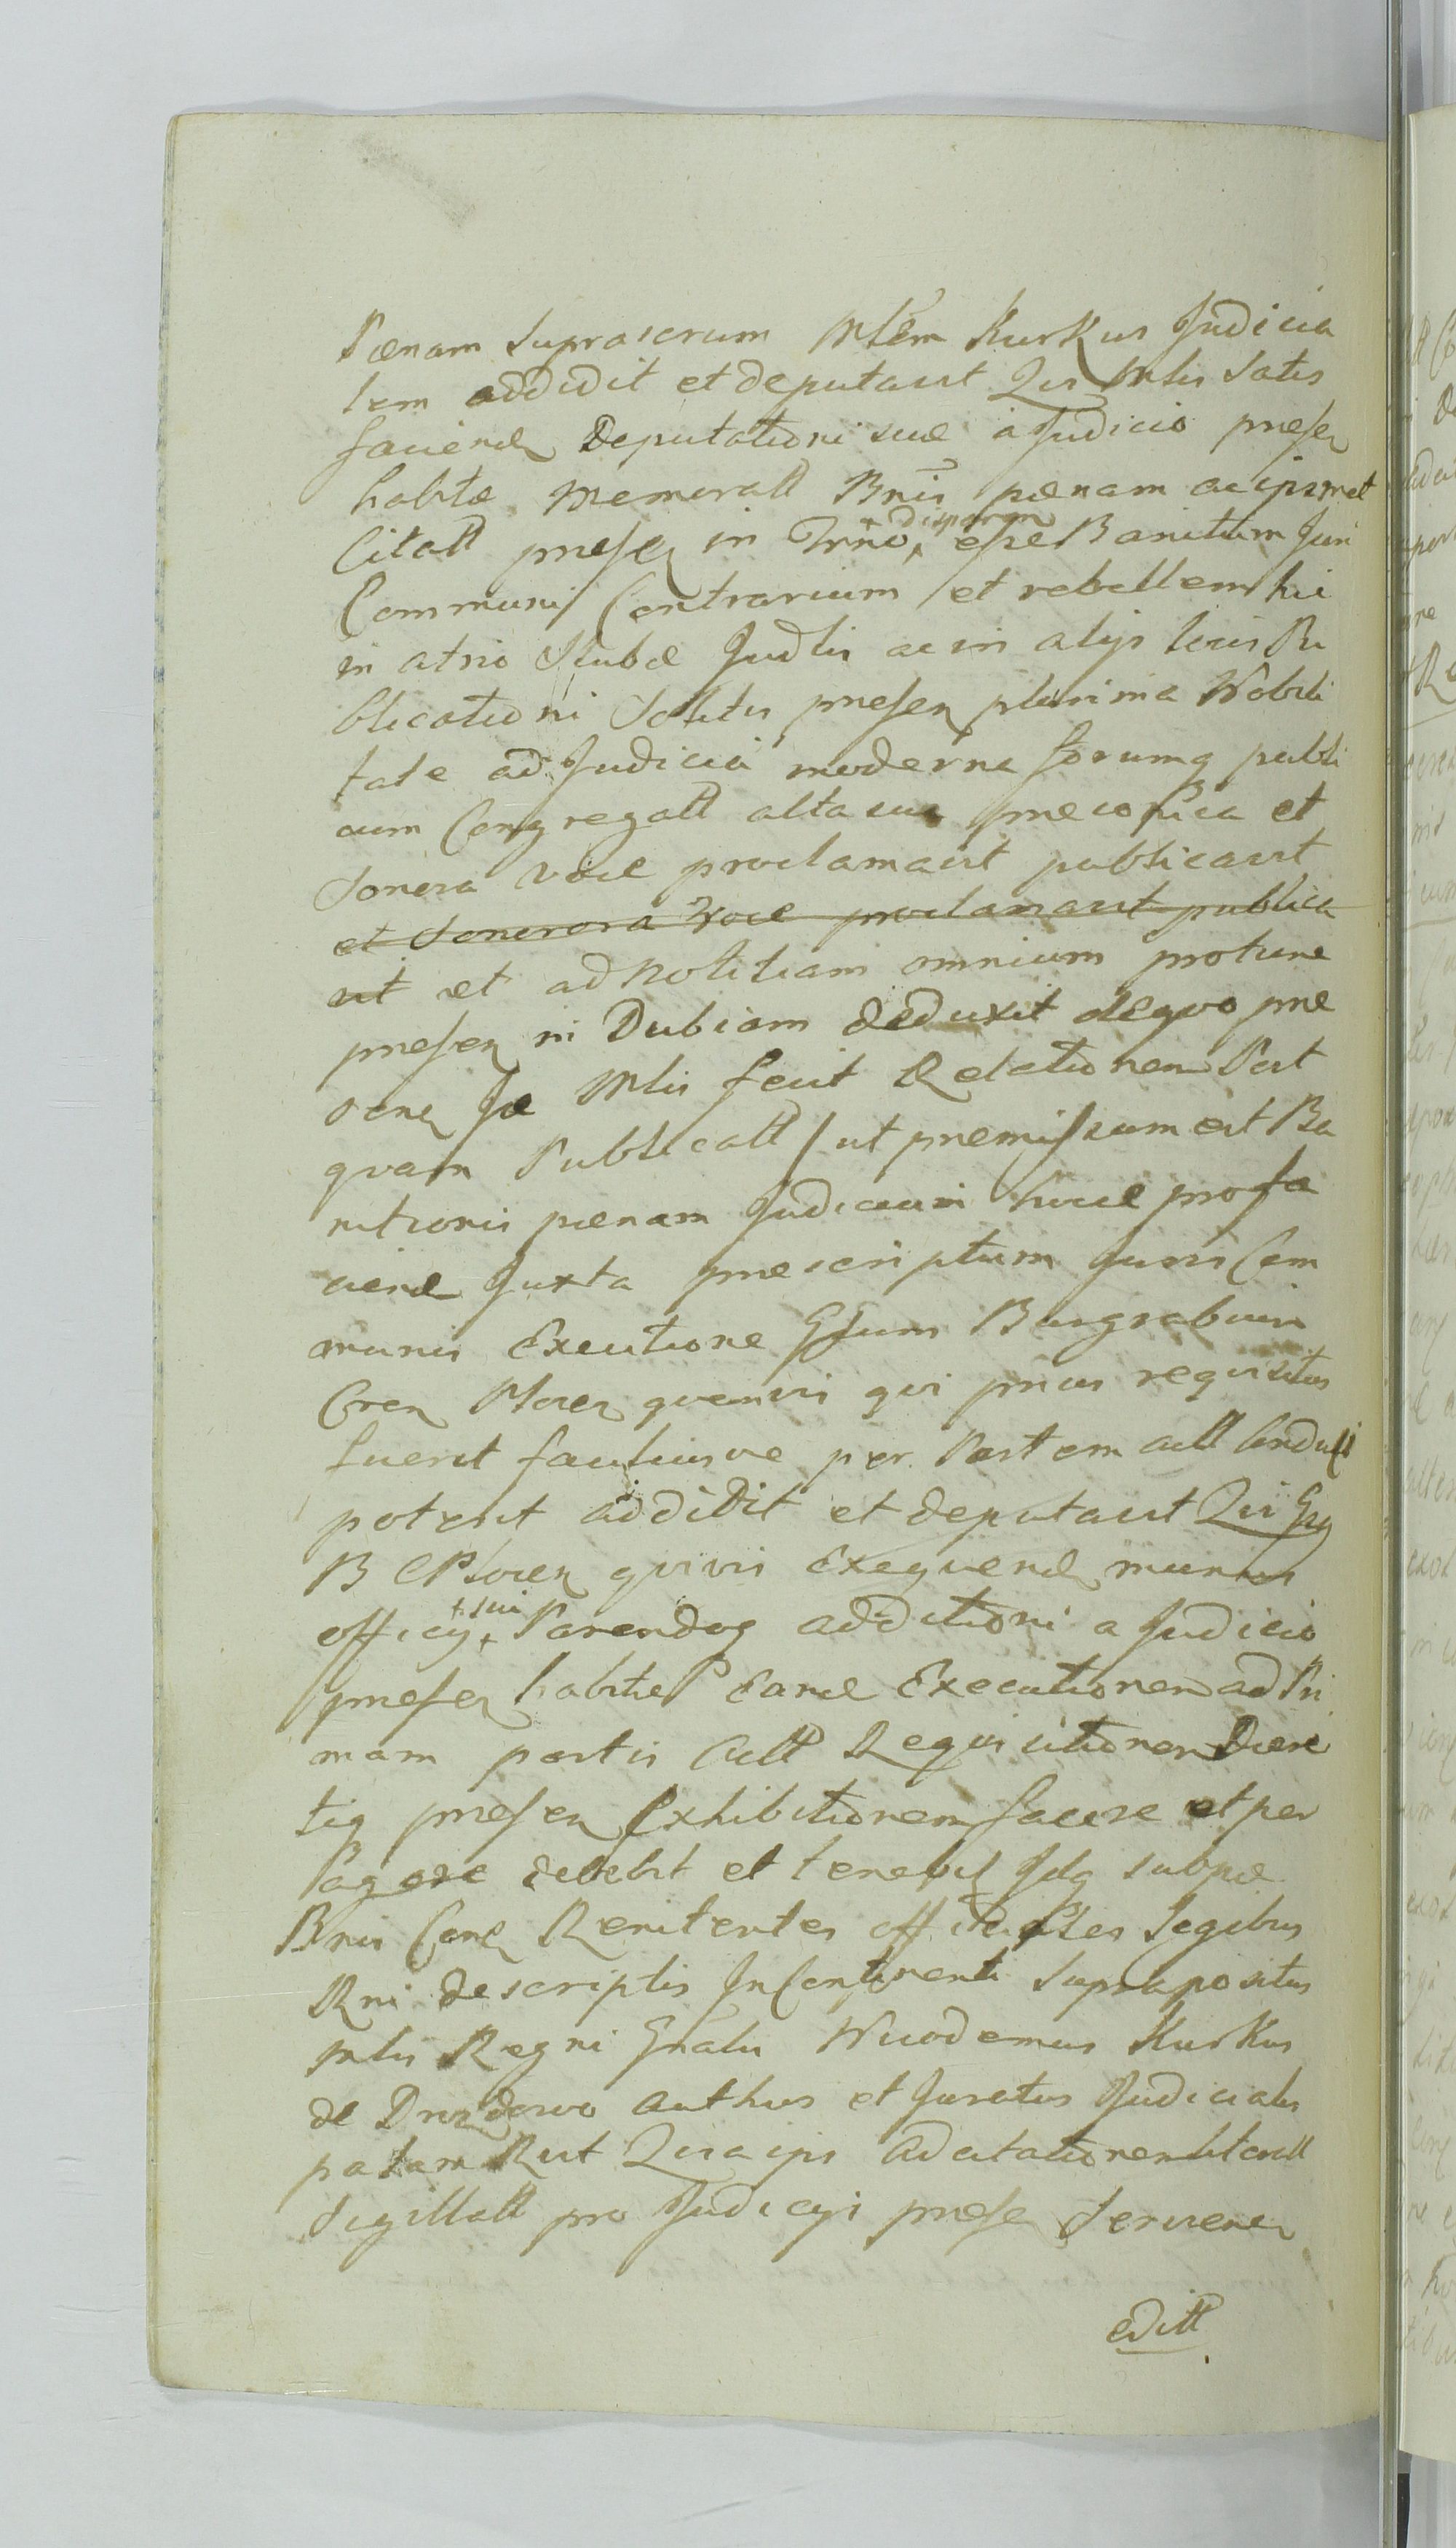 Pœnam suprascrum Mlẽm Kurkus Judicia
lem addidit et deputavit Qui Mlis Satis
faciend Deputationi suæ a Judicio præsen
habitæ memoratt Bnis pœnam ac ipsmet
Citatt præsen in Trno + disparen esse Banitum Juri
Communi Contrarium et rebellem hic
in atrio Stubæ Judlis ac in alijs locis Pu
blicationi Solitis præsen plurima Nobili
tate ad Judicia moderna forumq publi
cum Congregatt alta sua præconica et
Sonora voce proclamavit publicavit
et Sonorora voce proclamavit publica
vit et ad Notitiam omnium protunc
præsen in Dubiam deduxit de quo præ
vene Jæ Mlis fecit Relationem Post
quam Publicatt / ut præmissum est Ba
nitionis pœnam Judicium hocce pro fa
ciend Juxta præscriptum Juris Com
munis Executione Gsum Burgrabium
Cren Ploren quemvis qui prius requisitus
fuerit faciliusve per Partem actt conduci
poterit addidit et deputavit Qui Gsg
B C Ploren quivis Exequend munus
officij + sui Parendog additioni a Judicio
præsen habitæ Eand Executionem ad Pri
mam partis Actt Requisitionem Decre
tiq præsen Exhibitionem facere et per
agere debebit et tenebit Idq sub pœ
Bnis Cone Renitentes officiales Legibus
Rni descriptis Incontinenti Suprapositus
Mlis Regni Gnalis Nicodemus Kurkus
de Drozdowo Authus et Juratus Judicialis
palam Rcit Quia ips Ad citationem literatt
Sigillatt pro Judicijs præsen Servien
editt